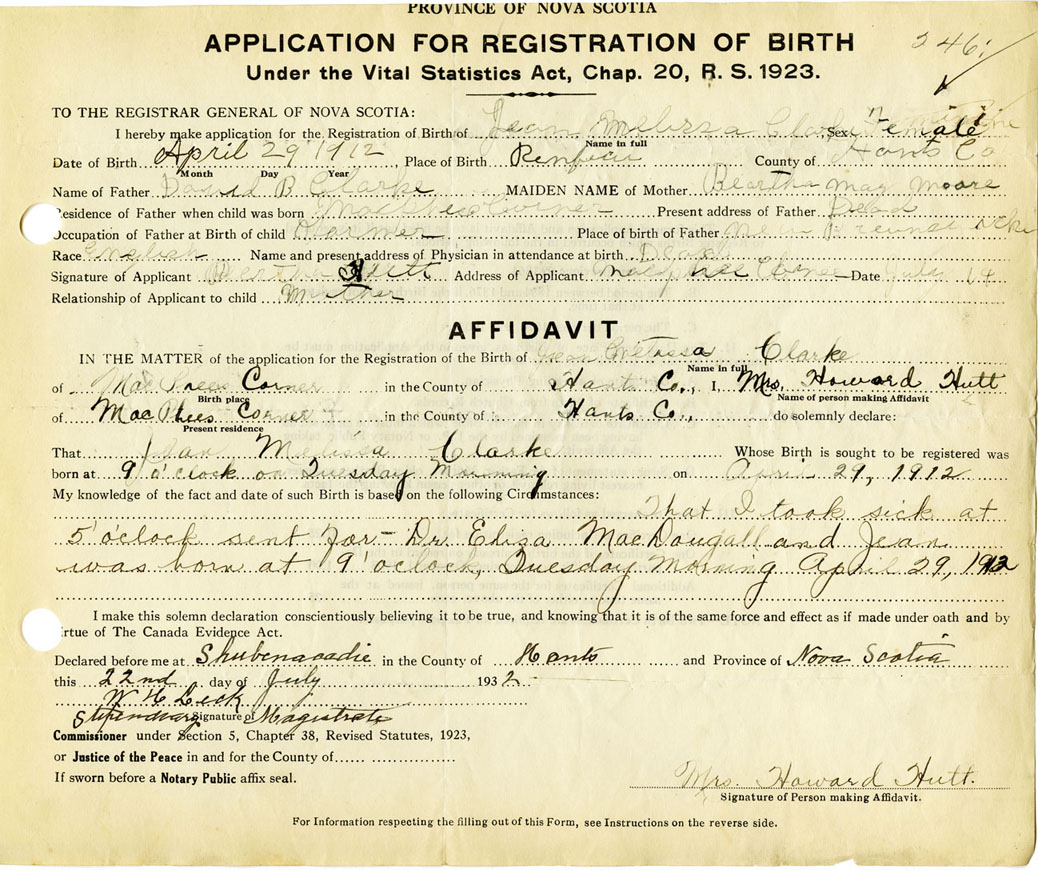 PROVINCE OF NOVA SCOTIA
APPLICATION FOR REGISTRATION OF BIRTH
246
Under the Vital Statistics Act, Chap. 20, R. S. 1923.
TO THE REGISTRAR GENERAL OF NOVA SCOTIA:
I hereby make application for the Registration of Birth of Jean Melissa Clarke Sex Female
Name in full
Date of Birth April 29 1912, Place of Birth Renfrew County of Hants Co
Month Day Year
Name of Father David B Clarke MAIDEN NAME of Mother Beartha May Moore
Residence of Father when child was born Present address of Father Dead
Occupation of Father at Birth of child Farmer Place of birth of Father New
Race English Name and present address of Physician in attendance at birth Dead
Signature of Applicant Bertha Hutt Address of Applicant Macphees Corner Date July 14
Relationship of Applicant to child Mother
AFFIDAVIT
IN THE MATTER of the application for the Registration of the Birth of Jean Melissa Clarke
Name in full
of MacPhees Corner in the County of Hants Co., I, Mrs. Howard Hutt
Birth place Name of person making Affidavit
of MacPhees Corner in the County of Hants Co., do solemnly declare:
Present residence
That Jean Melissa Clarke Whose Birth is sought to be registered was
born at 9 o'clock on Tuesday Morning on April 29, 1912
My knowledge of the fact and date of such Birth is based on the following Circumstances:
That I took sick at
5 o'clock sent for - Dr. Eliza MacDougall and Jean
was born at 9 o'clock, Tuesday Morning April 29, 1912
I make this solemn declaration conscientiously believing it to be true, and knowing that it is of the same force and effect as if made under oath and by
irtue of The Canada Evidence Act.
Declared before me at Shubenacadie in the County of Hants and Province of Nova Scotia
this 22nd day of July 1932.
W H Leck
Stipendiary Signature of Magistrate
Commissioner under Section 5, Chapter 38, Revised Statutes, 1923,
or Justice of the Peace in and for the County of
If sworn before a Notary Public affix seal.
Mrs. Howard Hutt.
Signature of Person making Affidavit.
For Information respecting the filling out of this Form, see Instructions on the reverse side.